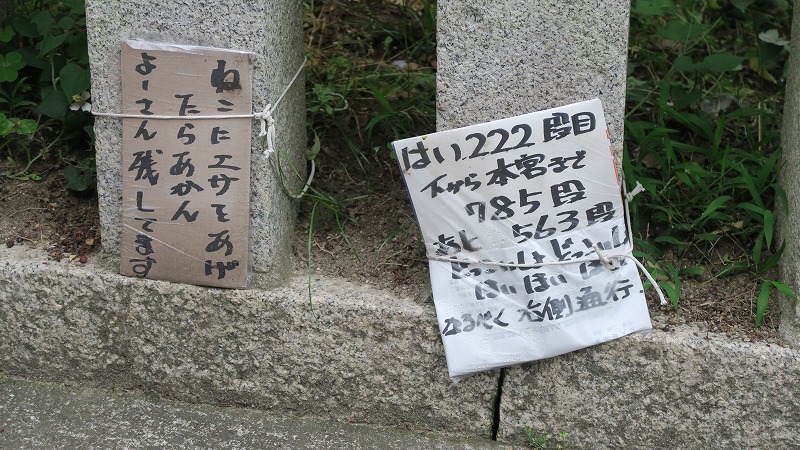 ねこにエサをあげ
たらあかん
よーさん残してます
はい、222段目
下から本宮まで
785段
あと 563段
どっこいしょどっこいしょ
はい ほい
なるべく右側通行